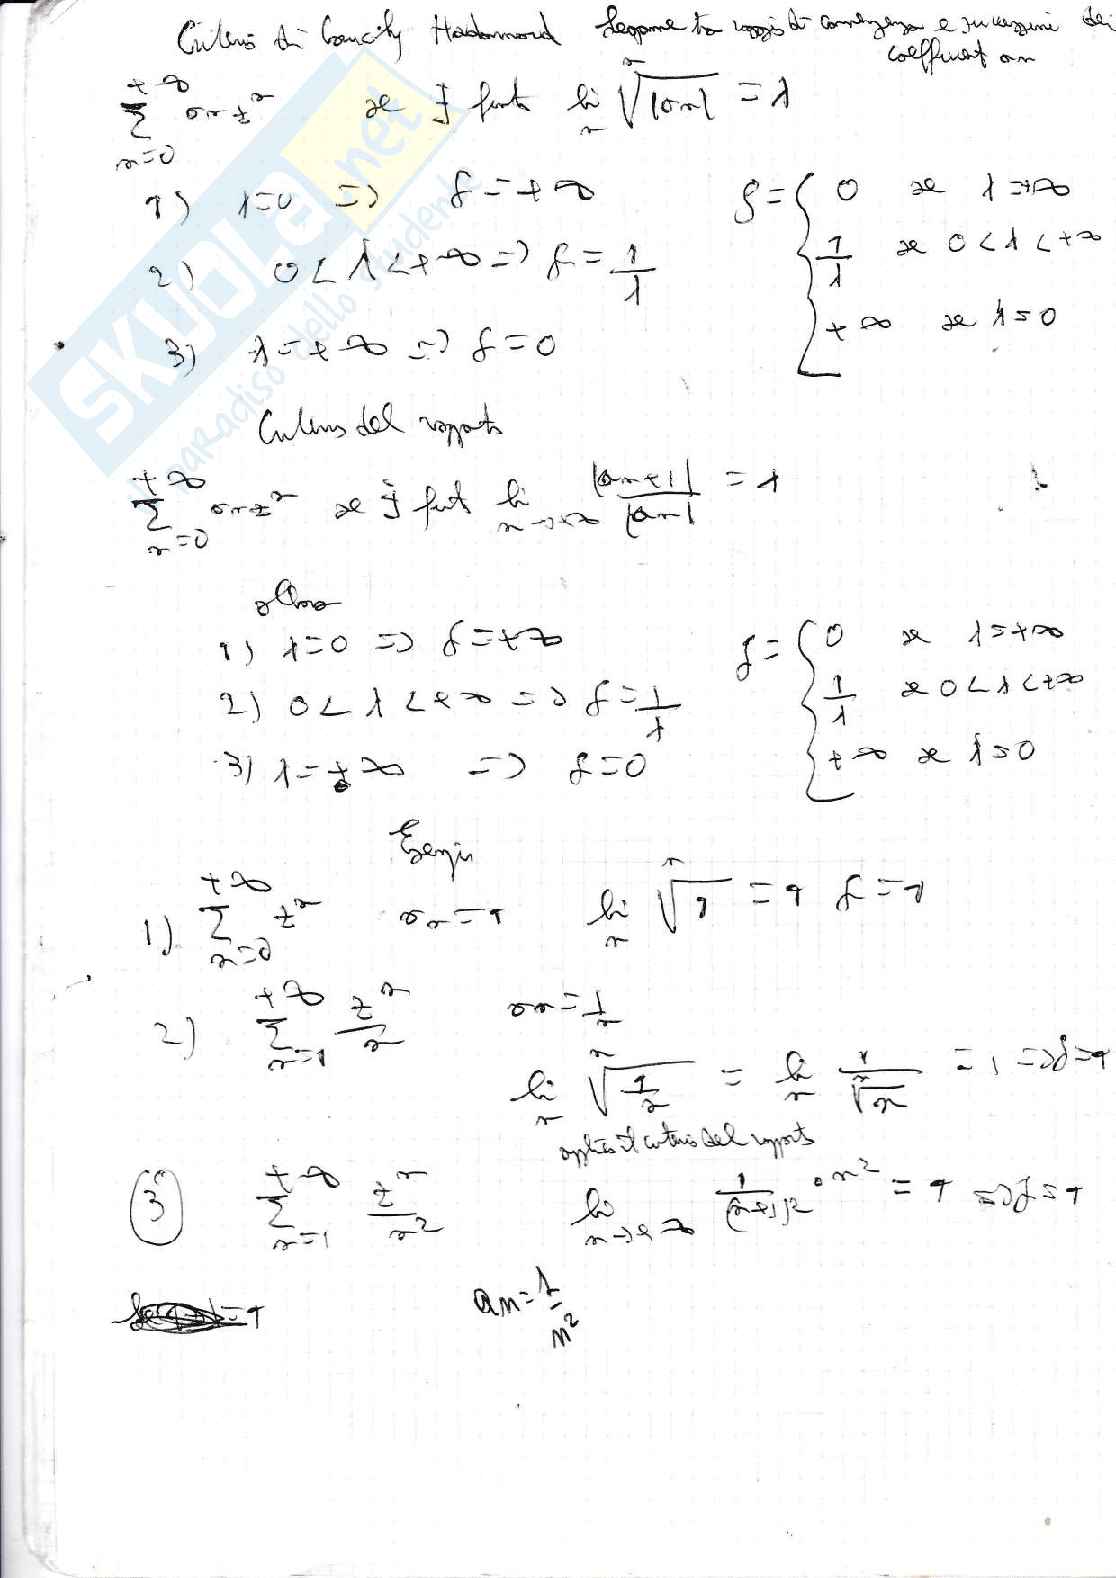 Criterio di Cauchy Hadamard legame tra raggio di convergenza e successione dei
coefficienti an
+∞
∑ an z^n se ∃ finito lim n √|an| = λ
n=0 n
1) λ=0 => ρ=+∞
2) 0<λ<+∞ => ρ=1/λ
3) λ=+∞ => ρ=0
ρ= { 0 se λ=+∞
1/λ se 0<λ<+∞
+∞ se λ=0
Criterio del rapporto
+∞
∑ an z^n se ∃ finito lim |an+1|/|an| = λ
n=0 n→+∞
allora
1) λ=0 => ρ=+∞
2) 0<λ<+∞ => ρ=1/λ
3) λ=+∞ => ρ=0
ρ= { 0 se λ=+∞
1/λ se 0<λ<+∞
+∞ se λ=0
Esempi
1) +∞ ∑ n=0 z^n an=1 lim n n√1 =1 ρ=1
2) +∞ ∑ n=1 z^n/n an=1/n
lim n n√(1/n) = lim n 1/n√n = 1 => ρ=1
applico il criterio del rapporto
3) +∞ ∑ n=1 z^n/n² lim n→+∞ 1/(n+1)² · n² = 1 => ρ=1
=1
an=1/n²
SKUOLA.net
il paradiso dello studente